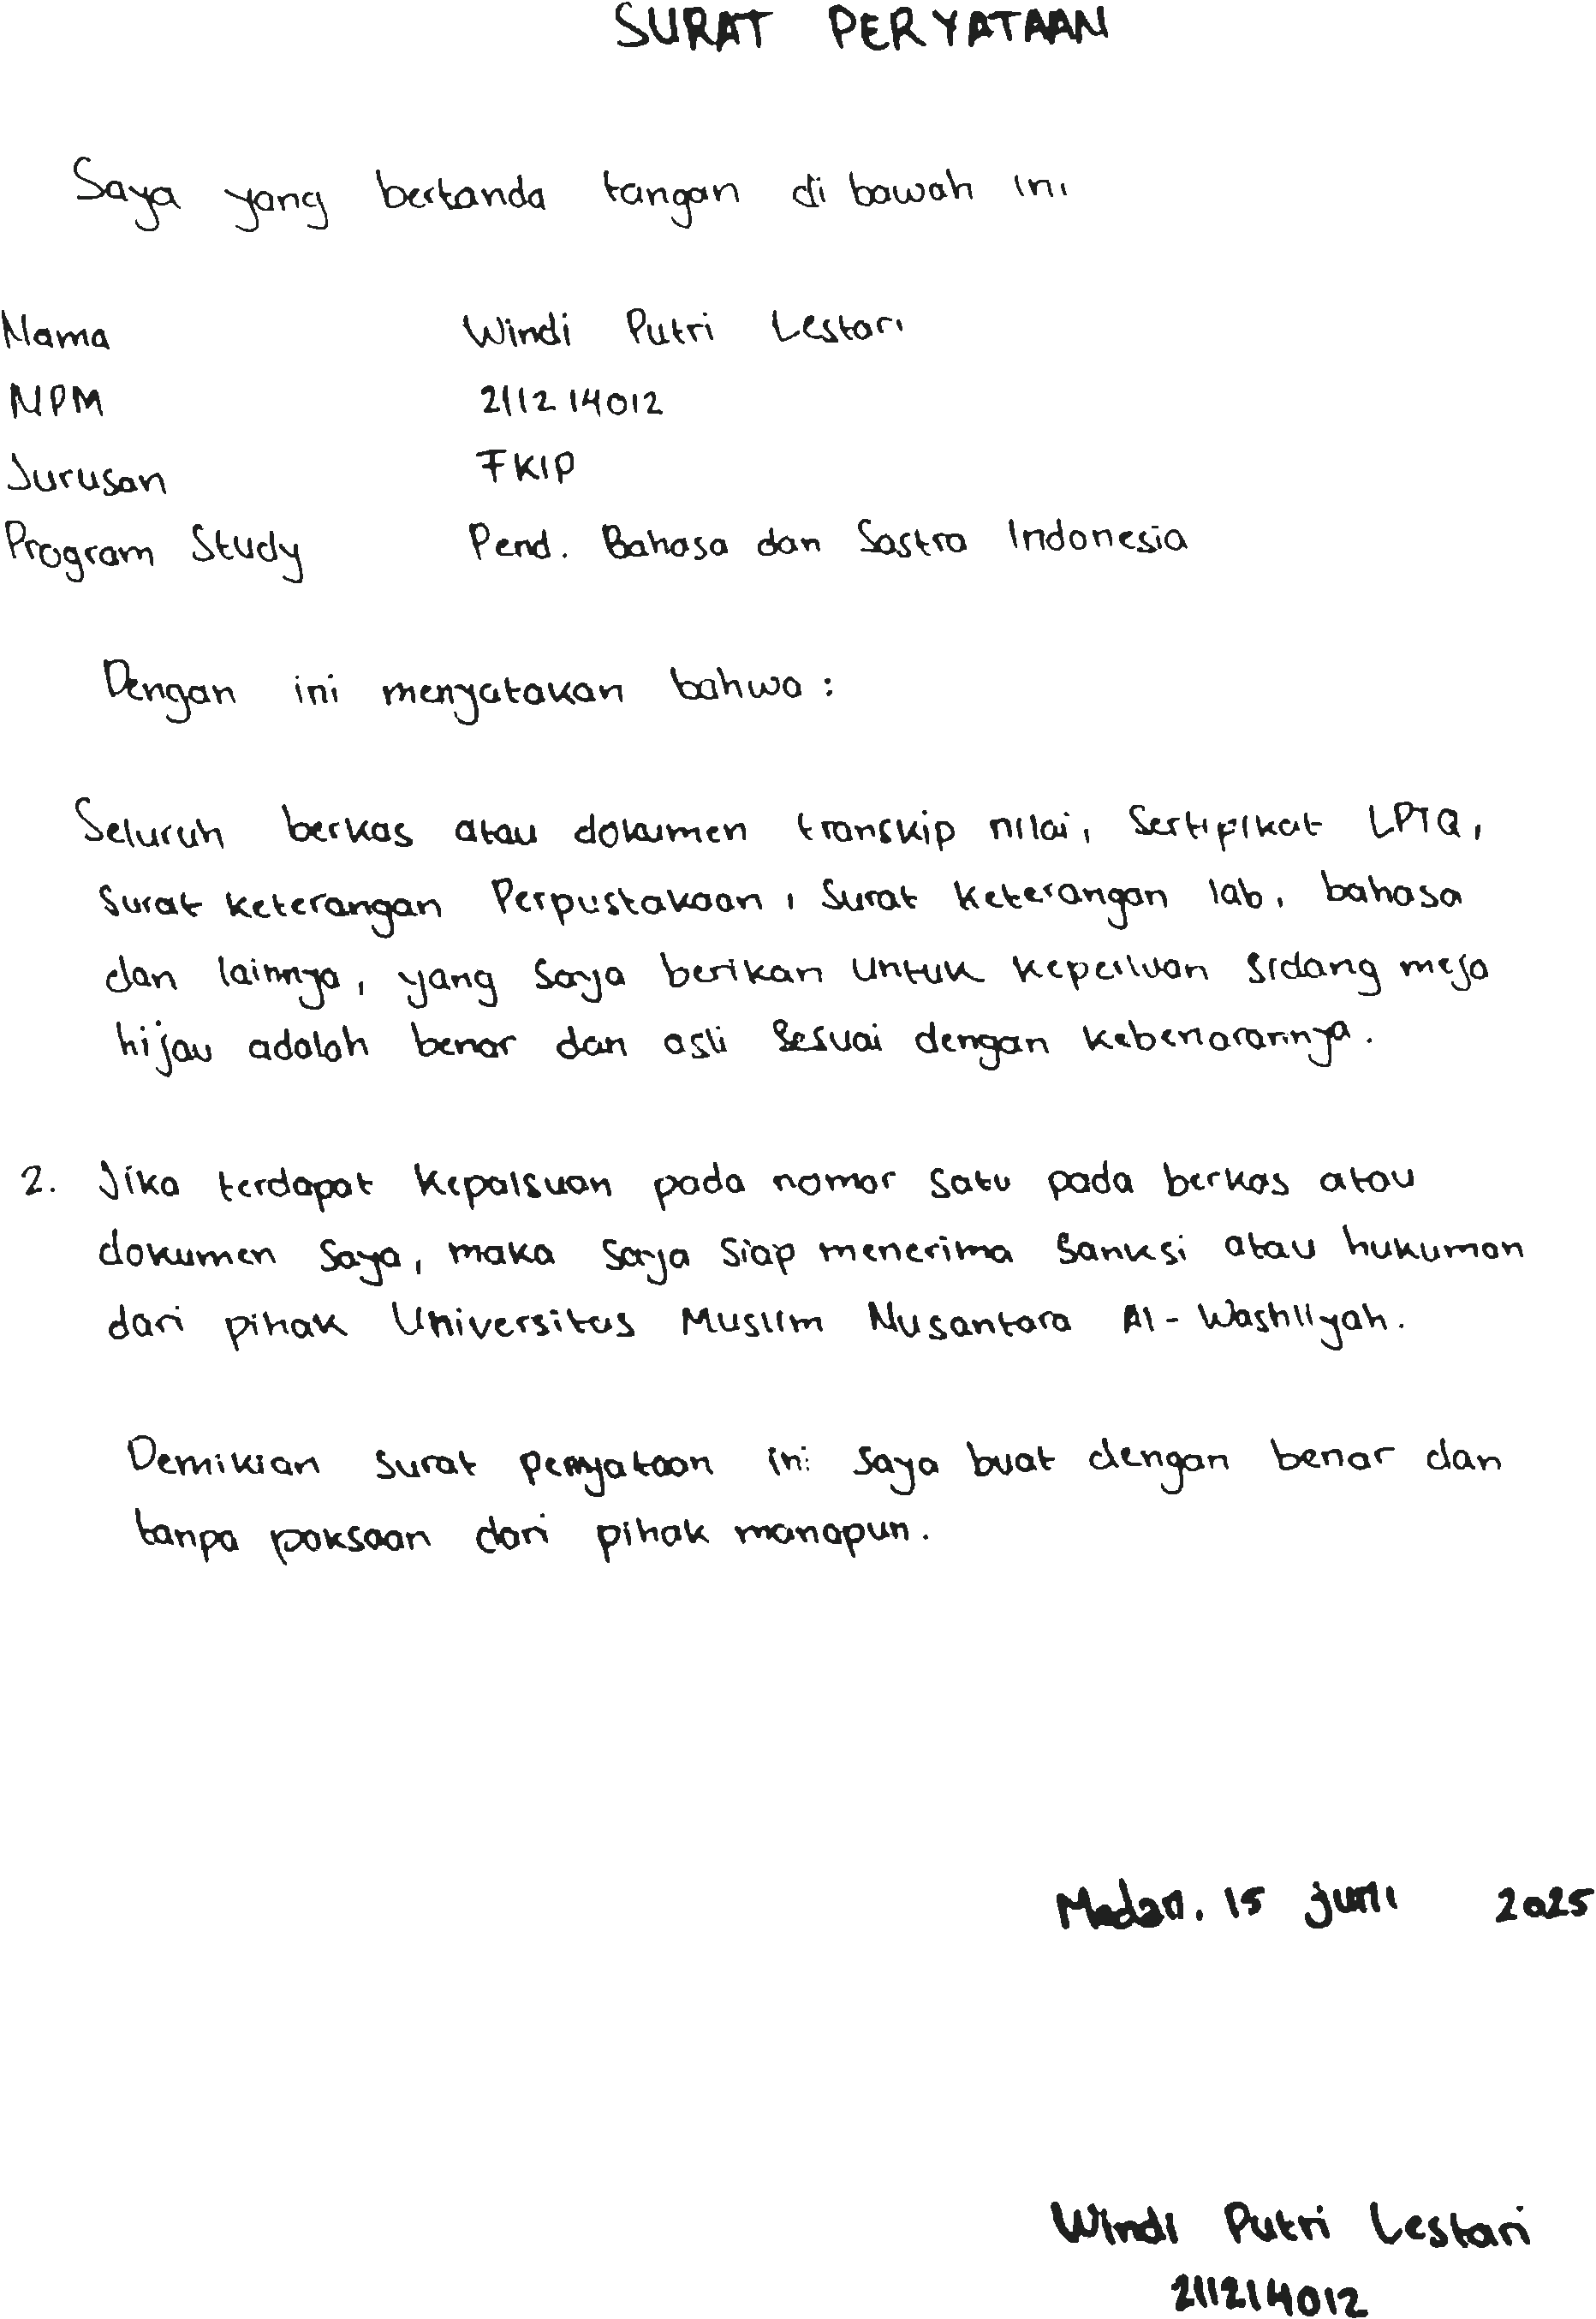 SURAT PERYATAAN
Saya yang bertanda tangan di bawah ini
Nama Windi Putri Lestari
NPM 211214012
Jurusan FKIP
Program Study Pend. Bahasa dan Sastra Indonesia
Dengan ini menyatakan bahwa :
Seluruh berkas atau dokumen transkip nilai, Sertifikat LPTQ,
Surat keterangan Perpustakaan, Surat keterangan lab, bahasa
dan lainnya, yang saya berikan untuk keperluan sidang meja
hijau adalah benar dan asli sesuai dengan kebenarannya.
2. Jika terdapat kepalsuan pada nomor satu pada berkas atau
dokumen saya, maka saya siap menerima sanksi atau hukuman
dari pihak Universitas Muslim Nusantara Al-Washliyah.
Demikian surat pernyataan ini saya buat dengan benar dan
tanpa paksaan dari pihak manapun.
Medan, 15 juni 2025
Windi Putri Lestari
211214012